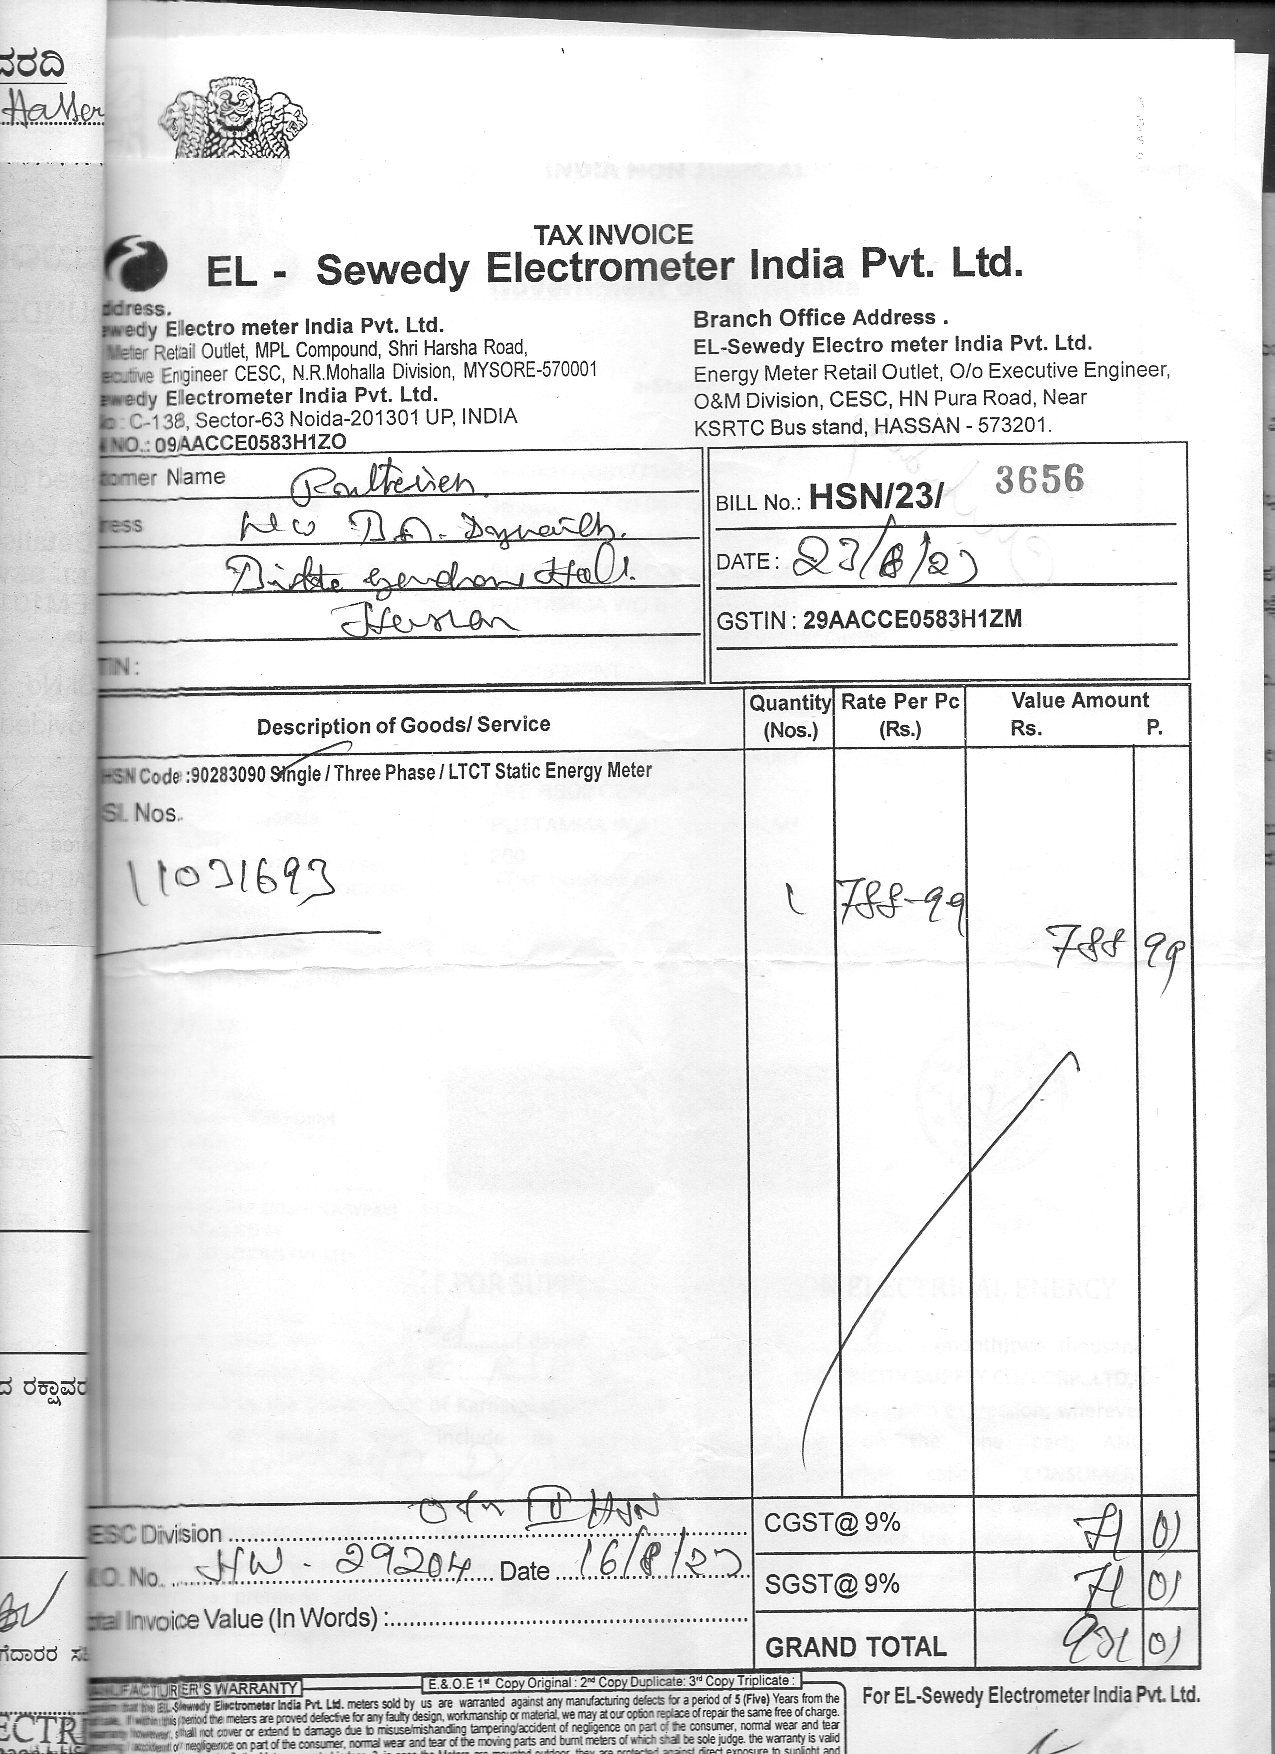 ವರದಿ
TAX INVOICE
EL - Sewedy Electrometer India Pvt. Ltd.
ddress.
ewedy Electro meter India Pvt. Ltd.
Meter Retail Outlet, MPL Compound, Shri Harsha Road,
ecutive Engineer CESC, N.R.Mohalla Division, MYSORE-570001
ewedy Electrometer India Pvt. Ltd.
C-138, Sector-63 Noida-201301 UP, INDIA
NO.: 09AACCE0583H1ZO
Branch Office Address .
EL-Sewedy Electro meter India Pvt. Ltd.
Energy Meter Retail Outlet, O/o Executive Engineer,
O&M Division, CESC, HN Pura Road, Near
KSRTC Bus stand, HASSAN - 573201.
tomer Name
ress
TIN :
BILL No.: HSN/23/ 3656
DATE : 23/8/23
GSTIN : 29AACCE0583H1ZM
Description of Goods/ Service
Quantity (Nos.)
Rate Per Pc (Rs.)
Value Amount
Rs. P.
HSN Code :90283090 Single / Three Phase / LTCT Static Energy Meter
Sl. Nos.
11031693
1 788-99
788 99
ESC Division HSN
.O. No. HW - 29204 Date 16/8/23
otal Invoice Value (In Words) :
CGST@ 9% 71 01
SGST@ 9% 71 01
GRAND TOTAL 931 01
ದ ರಕ್ಷಾವರ
ಗೆದಾರರ ಸ
ECTR
E.& O.E 1st Copy Original : 2nd Copy Duplicate: 3rd Copy Triplicate :
NUFACTURIER'S WARRANTY
that the EL-Sewedy Electrometer India Pvt. Ltd. meters sold by us are warranted against any manufacturing defects for a period of 5 (Five) Years from the
If within this period the meters are proved defective for any faulty design, workmanship or material, we may at our option replace of repair the same free of charge.
however, shall not cover or extend to damage due to misuse/mishandling tampering/accident of negligence on part of the consumer, normal wear and tear
accident of negligence on part of the consumer, normal wear and tear of the moving parts and burnt meters of which shall be sole judge. the warranty is valid
For EL-Sewedy Electrometer India Pvt. Ltd.